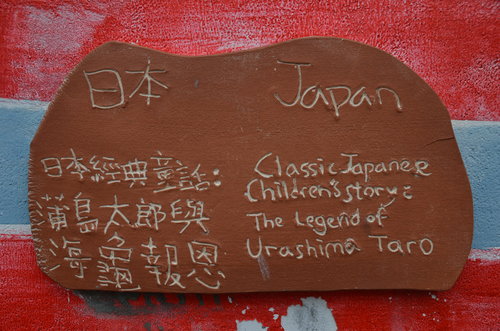 日本
日本經典童話:
蒲島太郎與
海龜報恩
Japan
Classic Japanese
Children's story:
The Legend of
Urashima Taro